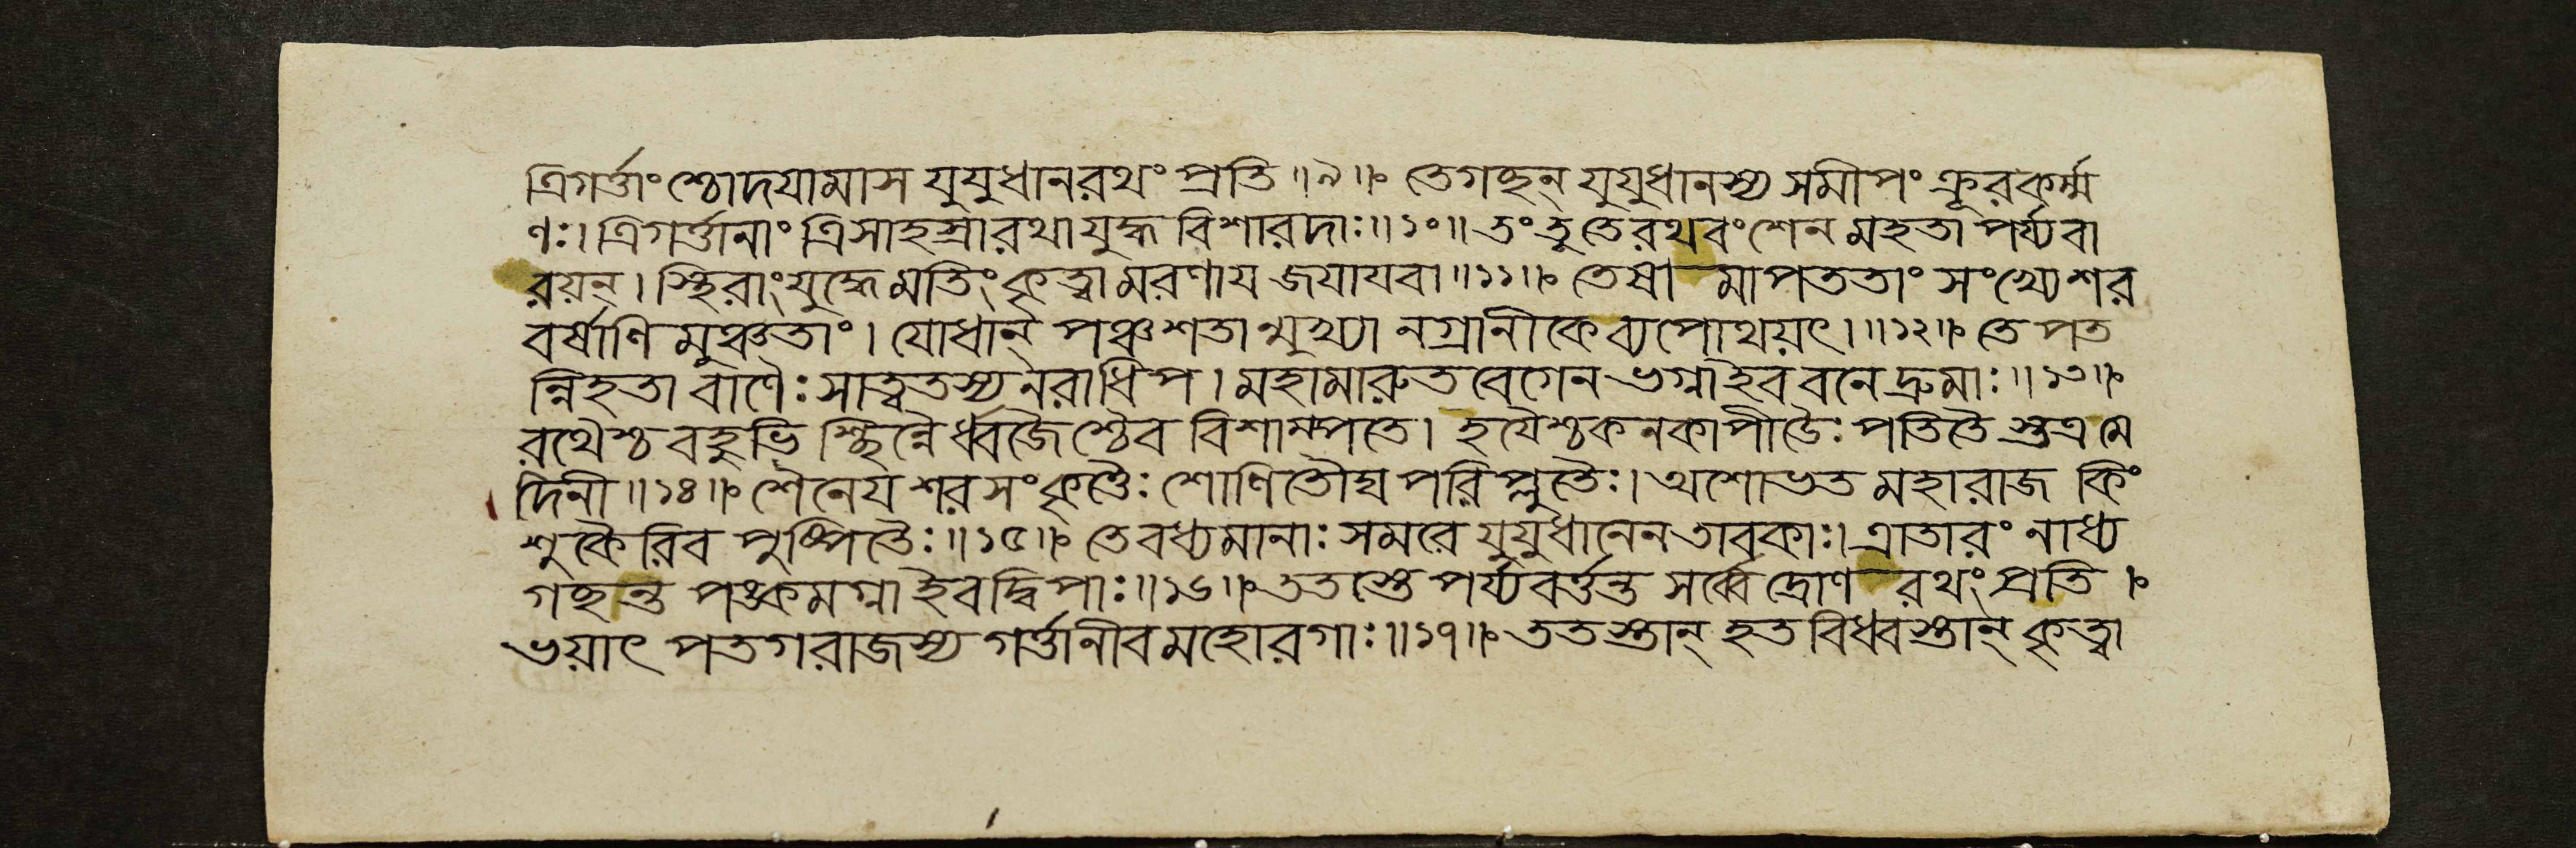 ত্রিগর্ত্তাংশ্চোদযামাস যুযুধানরথং প্রতি॥৯॥ তেগচ্ছন্ যুযুধানস্য সমীপং ক্রূরকর্ম্ম
ণঃ।ত্রিগর্ত্তানাং ত্রিসাহস্রারথাযুদ্ধ বিশারদাঃ॥১০॥ তংতুতেরথবংশেন মহতা পর্য্যবা
রয়ন্। স্থিরাংযুদ্ধেমতিংকৃত্বামরণায জযাযবা॥১১॥ তেষা মাপততাং সংখ্যেশর
বর্ষাণি মুঞ্চতাং। যোধান্ পঞ্চশতান্মুখ্যা নগ্রানীকে ব্যপোথয়ৎ।॥১২॥ তে পত
ন্নিহতা বাণৈঃ সাত্বতস্য নরাধিপ। মহামারুত বেগেন ভগ্নাইব বনে দ্রুমাঃ॥১৩॥
রথৈশ্চ বহুভি শ্ছিন্নৈর্ধ্বজৈশ্চৈব বিশাম্পতে। হযৈশ্চকনকাপীডৈঃ পতিতৈ স্তত্র মে
দিনী॥১৪॥ শৈনেয শরসংকৃত্তৈঃ শোণিতৌঘ পরিপ্লুতৈঃ। অশোভত মহারাজ কিং
শুকৈরিব পুষ্পিতৈঃ॥১৫॥ তেবধ্যমানাঃ সমরে যুযুধানেন তাবকাঃ। ত্রাতারং নাধ্য
গচ্ছন্ত পঙ্কমগ্না ইবদ্বিপাঃ॥১৬॥ ততস্তে পর্য্যবর্ত্তন্ত সর্ব্বেদ্রোণ রথংপ্রতি।
ভয়াৎ পতগরাজস্য গর্ত্তানীবমহোরগাঃ॥১৭॥ ততস্তান্ হতবিধ্বস্তান্ কৃত্বা